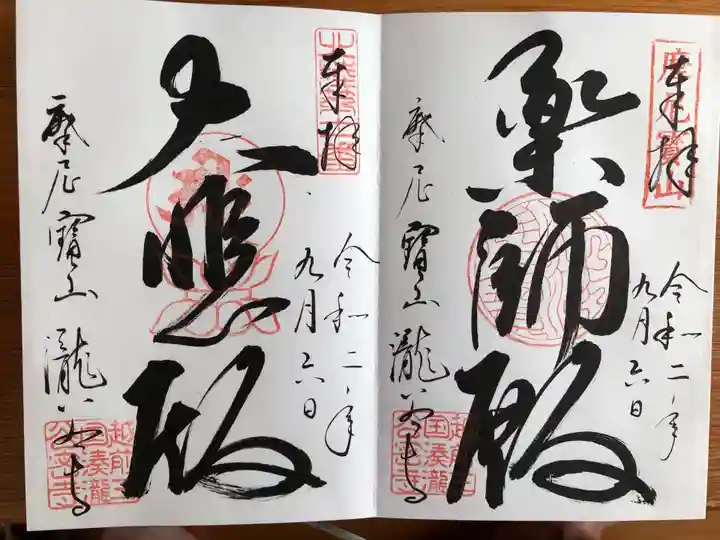 奉拝
薬師殿
令和二年
九月六日
摩尼寳山
瀧谷寺
摩尼寳山
越前三国湊瀧谷寺
奉拝
大悲殿
令和二年
九月六日
摩尼寳山
瀧谷寺
越前三国湊瀧谷寺